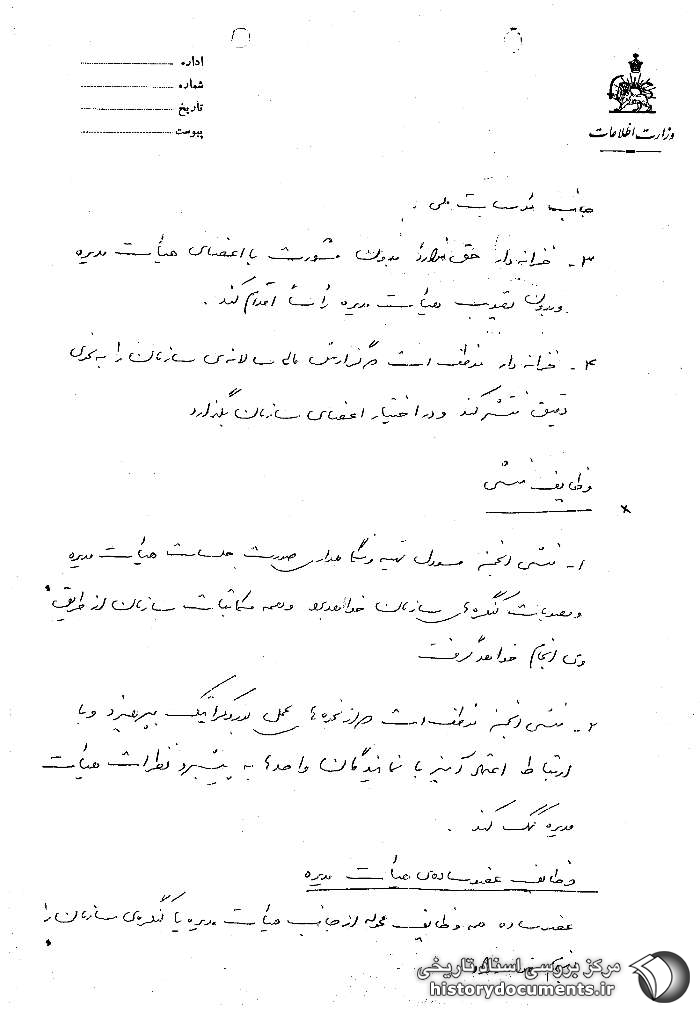 اداره
شماره
تاریخ
پیوست
وزارت اطلاعات
جانب مؤسسات ملی .
۳- خزانه‌دار حق ندارد بدون مشورت با اعضای هیأت مدیره
وبدون تصویب هیأت مدیره رأساً اقدام کند .
۴- خزانه دار موظف است که گزارش مالی سالانه‌ی سازمان را به نحوی
دقیق منتشر کند و در اختیار اعضای سازمان بگذارد
وظایف منشی
x
۱- منشی انجمن مسوول تهیه ونگاهداری صورت جلسات هیأت مدیره
ومصوبات کنگره‌ی سازمان خواهد بود وهمه مکاتبات سازمان از طریق
وی انجام خواهد گرفت
۲- منشی انجمن موظف است که از نحوه‌های عمل بوروکراتیک بپرهیزد وبا
ارتباط اعتماد آمیز با نمایندگان واحدها به پیشبرد نظرات هیأت
مدیره کمک کند .
وظائف عضو ساده‌ی هیأت مدیره
عضو ساده همه وظایف محوله از جانب هیأت مدیره یا کنگره‌ی سازمان را
مرکز بررسی اسناد تاریخی
historydocuments.ir